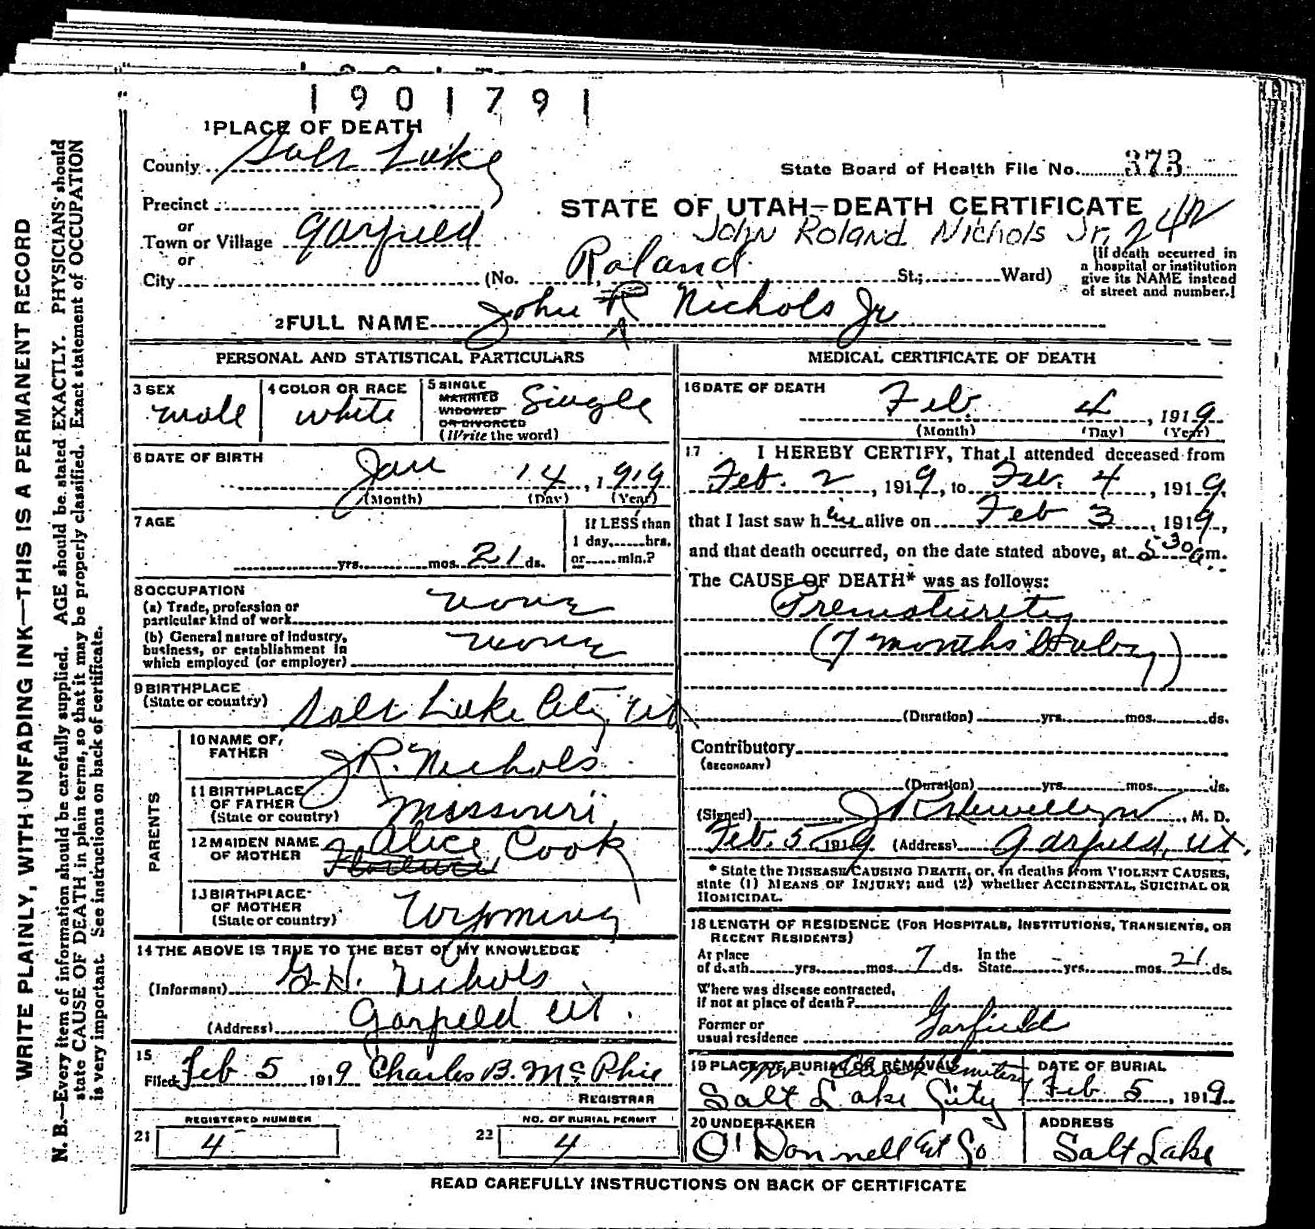 1901791
1 PLACE OF DEATH
County Salt Lake
State Board of Health File No. 373
Precinct
or
Town or Village Garfield
or
City
STATE OF UTAH—DEATH CERTIFICATE
John Roland Nichols Jr.
(No. St.; Ward)
Roland
(If death occurred in
a hospital or institution
give its NAME instead
of street and number.)
2 FULL NAME John R Nichols Jr
PERSONAL AND STATISTICAL PARTICULARS
3 SEX
male
4 COLOR OR RACE
white
5 SINGLE
MARRIED
WIDOWED
OR DIVORCED
(Write the word)
Single
6 DATE OF BIRTH
Jan 14, 1919
(Month) (Day) (Year)
7 AGE
yrs. mos. 21 ds.
If LESS than
1 day, hrs.
or min.?
8 OCCUPATION
(a) Trade, profession or
particular kind of work none
(b) General nature of industry,
business, or establishment in
which employed (or employer) none
9 BIRTHPLACE
(State or country) Salt Lake City Ut
PARENTS
10 NAME OF
FATHER J.R. Nichols
11 BIRTHPLACE
OF FATHER
(State or country) Missouri
12 MAIDEN NAME
OF MOTHER Alice Cook
13 BIRTHPLACE
OF MOTHER
(State or country) Wyoming
14 THE ABOVE IS TRUE TO THE BEST OF MY KNOWLEDGE
(Informant) G.H. Nichols
(Address) Garfield Ut.
15
Filed Feb 5 1919 Charles B. McPhie
REGISTRAR
REGISTERED NUMBER
21 4
NO. OF BURIAL PERMIT
22 4
MEDICAL CERTIFICATE OF DEATH
16 DATE OF DEATH
Feb. 4, 1919
(Month) (Day) (Year)
17 I HEREBY CERTIFY, That I attended deceased from
Feb. 2, 1919, to Feb. 4, 1919.
that I last saw him alive on Feb 3, 1919,
and that death occurred, on the date stated above, at 5 30 a m.
The CAUSE OF DEATH* was as follows:
Prematurity
(7 months baby)
(Duration) yrs. mos. ds.
Contributory
(SECONDARY)
(Duration) yrs. mos. ds.
(Signed) J R Llewellyn, M. D.
Feb. 5 1919 (Address) Garfield, Ut.
* State the DISEASE CAUSING DEATH, or, in deaths from VIOLENT CAUSES,
state (1) MEANS OF INJURY; and (2) whether ACCIDENTAL, SUICIDAL OR
HOMICIDAL.
18 LENGTH OF RESIDENCE (FOR HOSPITALS, INSTITUTIONS, TRANSIENTS, OR
RECENT RESIDENTS)
At place
of death yrs. mos. 7 ds.
In the
State yrs. mos. 21 ds.
Where was disease contracted,
if not at place of death?
Former or
usual residence Garfield
19 PLACE OF BURIAL OR REMOVAL
Cemetery
Salt Lake City
DATE OF BURIAL
Feb 5, 1919
20 UNDERTAKER
O'Donnell & Co
ADDRESS
Salt Lake
READ CAREFULLY INSTRUCTIONS ON BACK OF CERTIFICATE
WRITE PLAINLY, WITH UNFADING INK—THIS IS A PERMANENT RECORD
N. B.—Every item of information should be carefully supplied. AGE should be stated EXACTLY. PHYSICIANS should
state CAUSE OF DEATH in plain terms, so that it may be properly classified. Exact statement of OCCUPATION
is very important. See instructions on back of certificate.